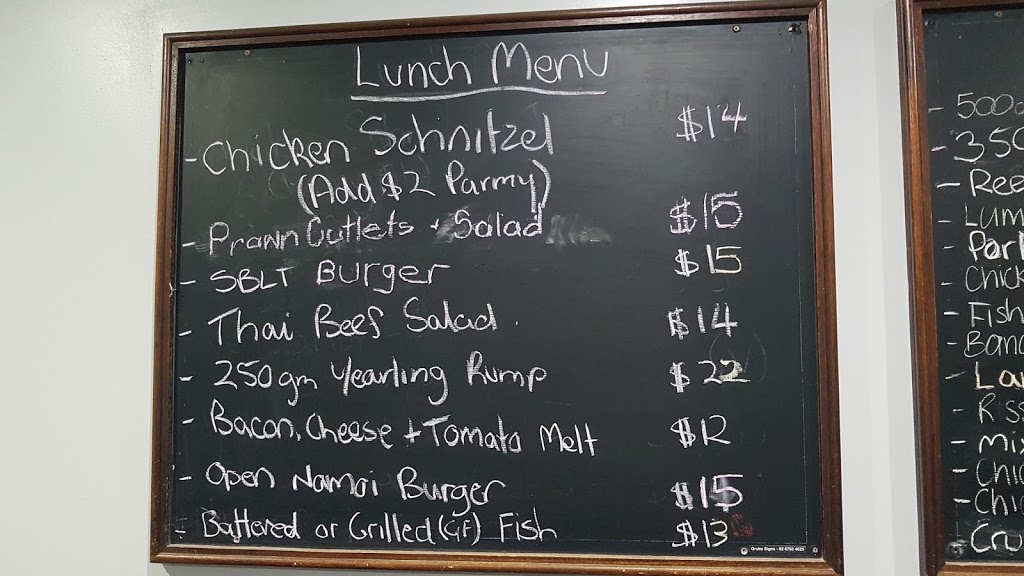 Lunch Menu
- Chicken Schnitzel $14
(Add $2 Parmy)
- Prawn Cutlets + Salad $15
- SBLT Burger $15
- Thai Beef Salad $14
- 250gm Yearling Rump $22
- Bacon, Cheese + Tomato Melt $12
- Open Namoi Burger $15
- Battered or Grilled (GF) Fish $13
Grubs Signs - 02 6792 4625
- 500
- 350
- Ree
- LUM
- Chick
- Fish
- Mix
- Chic
- Chi
- Cru